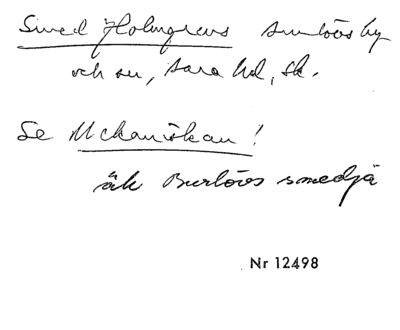 Smed Holmgrens Burlövs by
och sn, Bara hd, Sk.
Se Mekanikan!
äk Burlövs smedja
Nr 12498